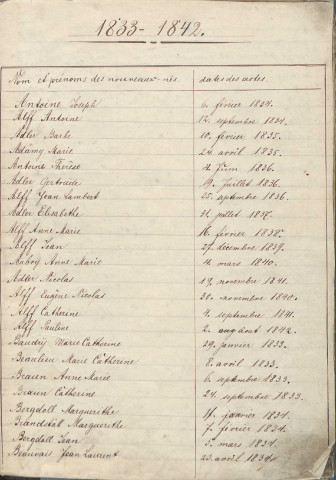 1833-1842.
Nom et prénoms des nouveaux-nés dates des actes
Antoine Joseph 6. février 1834.
Alff Antoine 12. septembre 1834.
Adler Barbe 10. février 1835.
Adamy Marie 24. avril 1835.
Antoine Thérèse 2. Juin 1836.
Adler Gertrude 19. Juillet 1836.
Alff Jean Lambert 25. septembre 1836.
Adler Elisabethe 31. juillet 1837.
Alff Anne Marie 16. février 1838.
Alff Jean 27. décembre 1839.
Anbry Anne Marie 14. mars 1840.
Adler Nicolas 19. novembre 1841.
Alff Eugène Nicolas 30. novembre 1840.
Alff Catherine 4. septembre 1841.
Alff Pauline 2. aug août 1842.
Baudry Marie Catherine 29. janvier 1833.
Beaulieu Marie Catherine 8. avril 1833.
Braun Anne Marie 6. septembre 1833.
Braun Catherine 24. septembre 1833.
Bergdoll Marguerithe 11. janvier 1834.
Brandstäl Marguerithe 7. février 1834.
Bergdoll Jean 5. mars 1834.
Beauvais Jean Laurent 23. avril 1834.